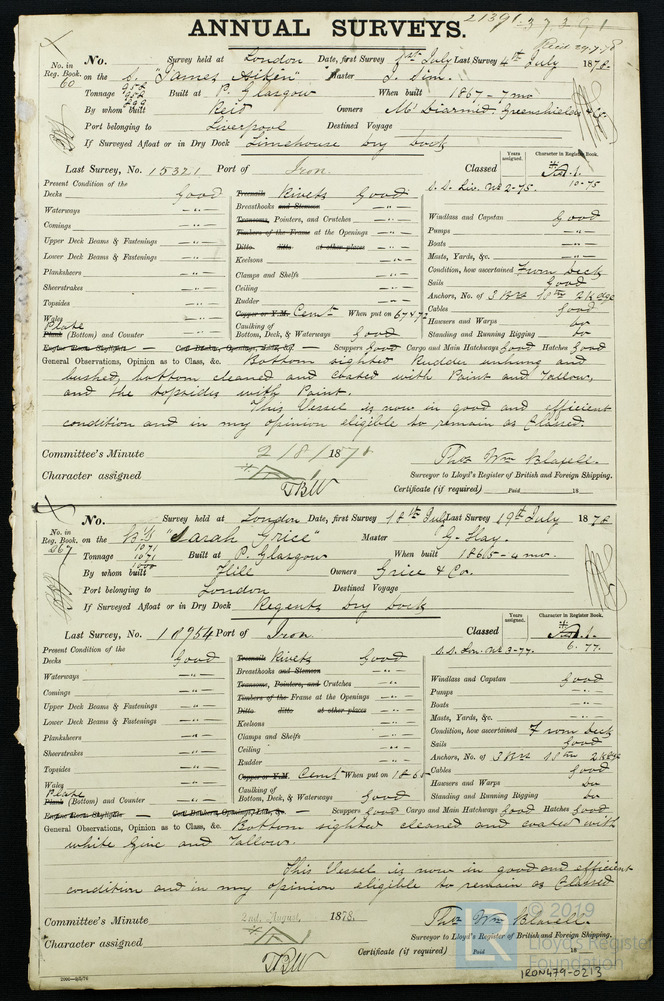 ANNUAL SURVEYS.
21391
37391
Recd 29.7.78
No. in Reg. Book. 60
No. Survey held at London Date, first Survey 1st July Last Survey 4th July 1878
on the S. "James Aiken" Master J. Sim.
Tonnage 958 958 Built at P. Glasgow When built 1867 - 7 mo
By whom built Reid Owners McDiarmid Greenshields & Co.
Port belonging to Liverpool Destined Voyage
If Surveyed Afloat or in Dry Dock Limehouse Dry Dock
Years assigned. Character in Register Book.
Last Survey, No. 15321 Port of Iron. Classed A.1.
10-75
S.S. Liv. No 2-75.
Present Condition of the
Decks Good Treenails Rivets Good
Waterways — " — Breasthooks and Stemson — " — Windlass and Capstan Good
Comings — " — Transoms, Pointers, and Crutches — " — Pumps — " —
Upper Deck Beams & Fastenings — " — Timbers of the Frame at the Openings — " — Boats — " —
Lower Deck Beams & Fastenings — " — Ditto ditto at other places Masts, Yards, &c. — " —
Keelsons — " — Condition, how ascertained From Deck
Planksheers — " — Clamps and Shelfs — " — Sails Good
Sheerstrakes — " — Ceiling — " — Anchors, No. of 3 Brs
Topsides — " — Rudder — " — Cables Good
Wales Copper or Y.M. Cemt When put on 67 & 72 Hawsers and Warps Do
Plate Plank (Bottom) and Counter — " — Caulking of Bottom, Deck, & Waterways Good Standing and Running Rigging Do
Engine Room Skylights — Coal Bunkers, Openings, Lids, &c. — Scuppers Good Cargo and Main Hatchways Good Hatches Good
General Observations, Opinion as to Class, &c. Bottom sighted Rudder unhung and
bushed, bottom cleaned and coated with Paint and Tallow,
and the topsides with Paint.
This Vessel is now in good and efficient
condition and in my opinion eligible to remain as Classed.
Committee's Minute 2/8/1878
Thos Wm Blaxell.
Character assigned
Surveyor to Lloyd's Register of British and Foreign Shipping.
TBW
Certificate (if required) Paid 18
No. in Reg. Book. 267
No. Survey held at London Date, first Survey 18th July Last Survey 19th July 1878
on the "Sarah Grice" Master G. Hay.
Tonnage 1071 1071 1000 Built at P. Glasgow When built 1865 - 4 mo.
By whom built Hill Owners Grice & Co.
Port belonging to London Destined Voyage
If Surveyed Afloat or in Dry Dock Regents Dry Dock
Years assigned. Character in Register Book.
Last Survey, No. 18954 Port of Iron. Classed A.1.
6. 77.
S.S. Lon. No 3-77.
Present Condition of the
Decks Good Treenails Rivets Good
Waterways — " — Breasthooks and Stemson Windlass and Capstan Good
Comings — " — Transoms, Pointers, and Crutches — " — Pumps — " —
Upper Deck Beams & Fastenings — " — Timbers of the Frame at the Openings — " — Boats — " —
Lower Deck Beams & Fastenings — " — Ditto ditto at other places Masts, Yards, &c. — " —
Keelsons — " — Condition, how ascertained From Deck
Planksheers — " — Clamps and Shelfs — " — Sails Good
Sheerstrakes — " — Ceiling — " — Anchors, No. of 3 Brs
Topsides — " — Rudder — " — Cables Good
Wales Copper or Y.M. Cemt When put on 1865 Hawsers and Warps Do
Plate Plank (Bottom) and Counter — " — Caulking of Bottom, Deck, & Waterways Good Standing and Running Rigging Do
Engine Room Skylights — Coal Bunkers, Openings, Lids, &c. — Scuppers Good Cargo and Main Hatchways Good Hatches Good
General Observations, Opinion as to Class, &c. Bottom sighted cleaned and coated with
white Zinc and Tallow.
This Vessel is now in good and efficient
condition and in my opinion eligible to remain as Classed
Committee's Minute 2nd August 1878.
Thos Wm Blaxell.
Character assigned
Surveyor to Lloyd's Register of British and Foreign Shipping.
TBW
Certificate (if required) Paid 18
© 2019
Lloyd's Register
Foundation
IRON479-0213